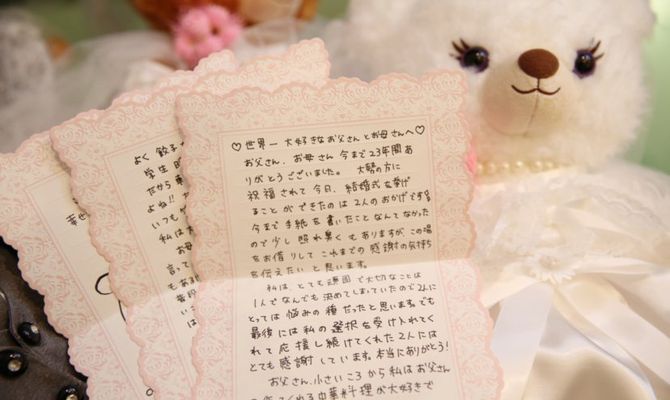 ♡世界一大好きなお父さんとお母さんへ♡
お父さん、お母さん 今まで23年間あ
りがとうございました。 大勢の方に
祝福されて今日、結婚式を挙げ
ることができたのは2人のおかげです。
今まで手紙を書いたことなんてなかった
ので少し照れ臭くもありますが、この場
をお借りしてこれまでの感謝の気持ち
を伝えたいと思います。
私は、とても頑固で大切なことは
1人でなんでも決めてしまっていたので2人に
とっては悩みの種だったと思います。でも
最後には私の選択を受け入れてく
れて応援し続けてくれた2人には
とても感謝しています。本当にありがとう!
お父さん、小さいころから私はお父さん
てくれる中華料理が大好きで
よく餃子
学生
だから
よね!!
いつも
私は
お母
言って